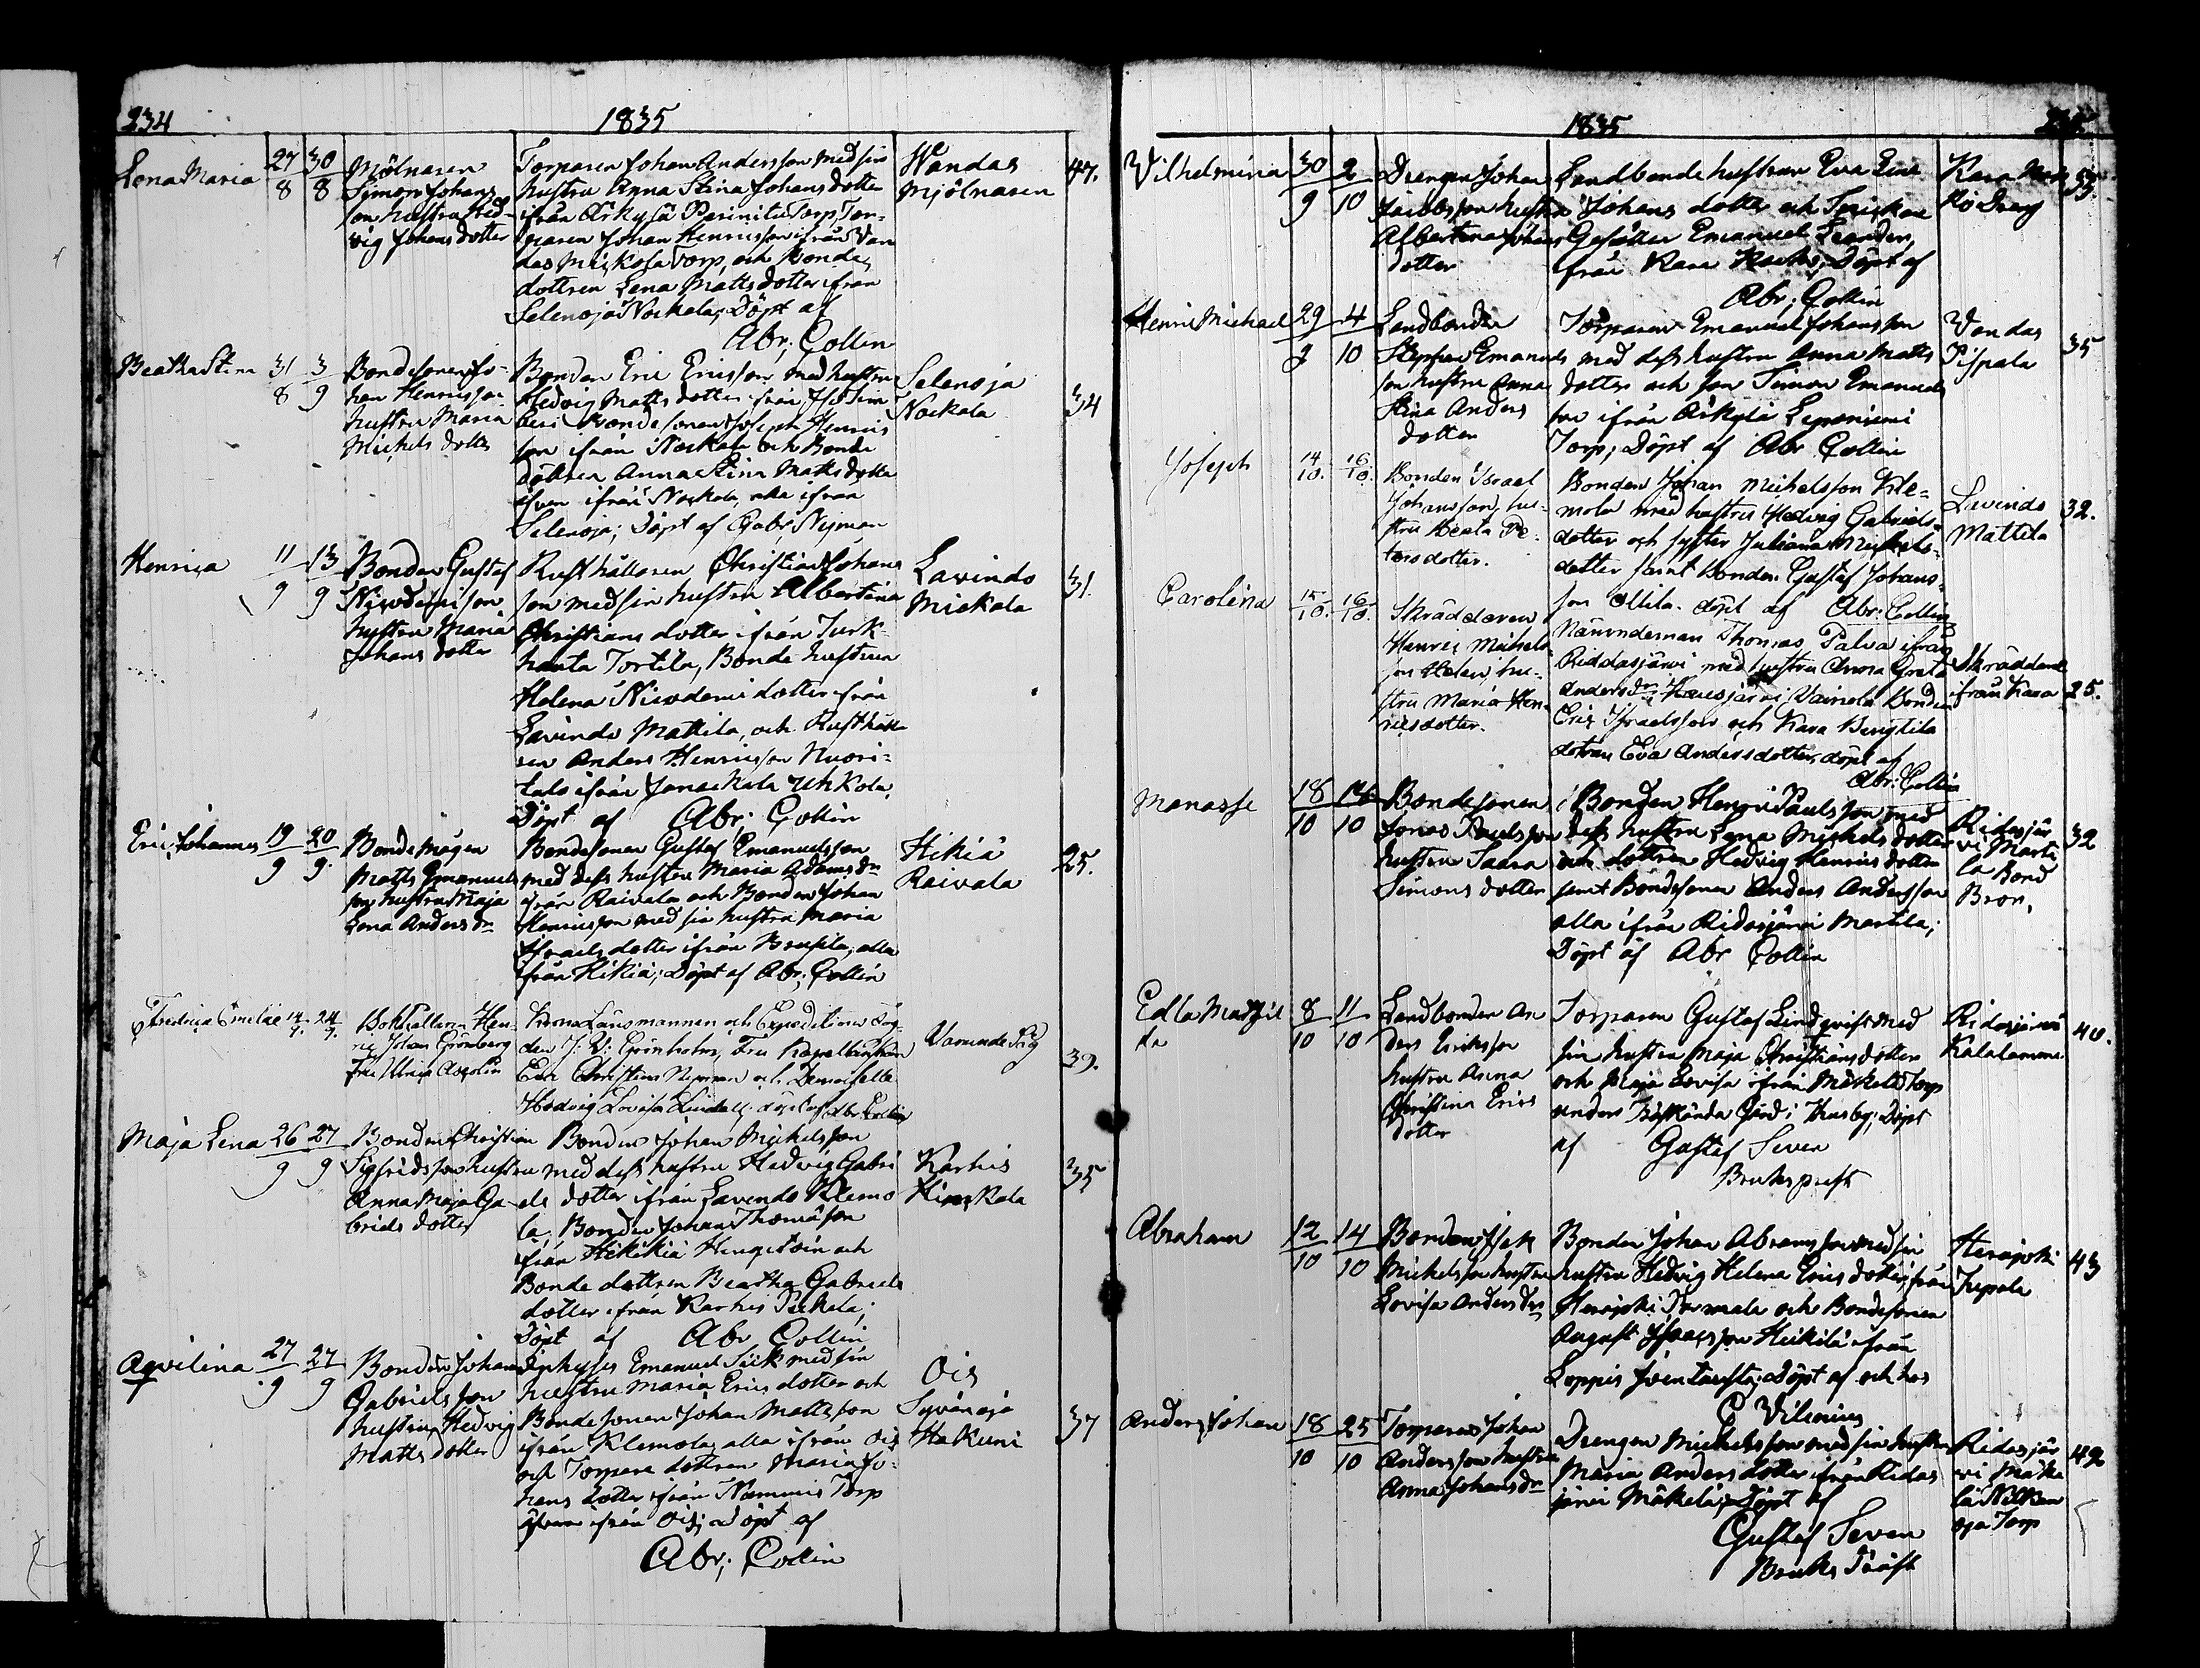 234
1835
Lena Maria 27/8 30/8
Mjölnaren
Simon Johans
son hustru Hed-
vig Johans dotter
Torparen Johan Andersson med sin
hustru Anna Stina Johans dotter
ifrån Torp Tor-
paren Johan Henricsson ifrån Van
das Mickola Torp, och Bonde
dottren Lena Matts dotter ifrån
Selenoja Nockala; Döpt af
Abr; Collin
Wandas
Mjölnaren
47.
Beatha Stina 31/8 3/9
Bondesonen Jo-
han Henricsson
hustru Maria
Mickels dotter
Bonden Eric Ericsson med hustru
Hedvig Matts dotter ifrån
Bondesonen Joseph Henrics
son ifrån Nockala och Bonde
dottren Anna Stina Matts dotter
ifrån Nockala, alla ifrån
Selenoja; Döpt af Gabr; Nyman
Selenoja
Nockala
34
Henrica 11/9 13/9
Bonden Gustaf
Nicodemi son
hustru Maria
Johans dotter
Rusthållaren Christian Johans
son med sin hustru Albertina
Christians dotter ifrån Turk-
hauta Tortila, Bonde hustrun
Helena Nicodemi dotter ifrån
Lavindo Mattila, och Rusthålla
ren Anders Henricsson Nuori-
talo ifrån Janackala Uhkola,
Döpt af Abr; Collin
Lavindo
Mickola
31.
Eric Johannes 19/9 20/9
Bondemågen
Matts Emanuels
son hustru Maja
Lena Anders dr
Bondesonen Gustaf Emanuelsson
med dess hustru Maria Adams dr
ifrån Raivala och Bonden Johan
Henricsson med sin hustru Maria
Israels dotter ifrån alla
ifrån Hikiä; Döpt af Abr; Collin
Hikiä
Raivala
25.
Fredrica Emelie 14/9. 24/9.
Bokhållaren Hen-
ric Johan Grönberg
Fru Ulrica Axelin
Krono Länsmannen och Expeditions Fog-
den J: V: Grönholm, Fru Kapellanskan
Eva Christina Nyman och Demoiselle
Hedvig Lovisa Lindell; döpt af Abr Collin
39.
Maja Lena 26/9 27/9
Bonden Christian
Sigfridsson hustru
Anna Maja Ga-
briels dotter
Bonden Johan Mickelsson
med dess hustru Hedvig Gabri
els dotter ifrån Lavindo Klemo
la; Bonden Johan Thomasson
från Hikikiä och
Bonde dottren Beatha Gabriels
dotter ifrån Karhis
Döpt af Abr Collin
Karhis
35
Aqvilina 27/9 27/9
Bonden Johan
Gabrielsson
hustru Hedvig
Matts dotter
Inhyses Emanuel med sin
hustru Maria Erics dotter och
Bondesonen Johan Mattsson
ifrån Klemola alla ifrån Ois
och Torpare dottren Maria Jo-
hans dotter ifrån Nummis Torp
ifrån Ois; Döpt af
Abr; Collin
Ois
Syvänoja
Hakuni
37
1835
Vilhelmina 30/9 2/10
Drengen Johan
Jacobsson hustru
Albertina Johans
dotter
Landbonde hustrun Eva Lisa
Johans dotter och
Gesällen Emanuel
från Kara Döpt af
Abr; Collin
Kara
Dräng
33.
Henric Michael 29/9 4/10
Landbonden
Stephan Emanuels
son hustru Anna
Stina Anders
dotter
Torparen Emanuel Johansson
med dess hustru Anna Matts
dotter och son Simon Emanuels
son ifrån Arkylä Leponiemi
Torp; Döpt af Abr Collin
Vandas
Pispala
35
Joseph 14/10. 16/10.
Bonden Israel
Johansson, hu-
stru Beata Pe-
tersdotter.
Bonden Johan Michelsson Kle-
mola med hustru Hedvig Gabriels-
dotter och syster Juliana Michels-
dotter samt Bonden Gustaf Johans-
son Ollila. döpt af Abr: Collin
Lavindo
Mattila
32.
Carolina 15/10. 16/10.
Skräddaren
Henric Michels
son hu-
stru Maria Hen-
ricsdotter.
Nämndeman Thomas Palva ifrån
Riddasjärvi med hustru Anna Greta
Anders dr, Hausjärvi Vainola Bonden
Eric Israelsson och Kara Bengtila
dotran Eva Andersdotter, döpt af
Abr: Collin
Skräddare
ifrån Kara
25.
Manasse 18/10 18/10
Bondesonen
Jonas Paulsson
hustru Saara
Simons dotter
Bonden Henric Paulsson med
dess hustru Lena Mickels dotter
och dottren Hedvig Henrics dotter
samt Bondesonen Anders Andersson
alla ifrån Ridasjärvi Martila;
Döpt af Abr Collin
Ridasjär
vi Marti
la Bond
Bror,
32
Edla Mathil
da 8/10 11/10
Landbonden An
ders Ericsson
hustru Anna
Christina Erics
dotter
Torparen Gustaf Lindqvist med
sin hustru Maja Christians dotter
och Maja Lovisa ifrån Mikola Torp
under Träskända Gård i Husby; Döpt
af Gustaf Seven
Bruks prest
Ridasjärvi
Kalalamme
40.
Abraham 12/10 14/10
Bonden Isak
Mickelsson hustru
Lovisa Anders dr
Bonden Johan Abramsson med sin
hustru Hedvig Helena Erics dotter från
Herajoki och Bondesonen
August Isaacsson Heikilä ifrån
Loppis Döpt af och hos
C Vilenius
Herajoki
Jupala
43
Anders Johan 18/10 25/10
Torparen Johan
Andersson hustru
Anna Johans dr
Drengen Mickelsson med sin hustru
Maria Anders dotter ifrån Ridas
järvi Mäkelä; Döpt af
Gustaf Seven
Bruks Präst
Ridasjär
vi Mäke
lä
oja Torp
42